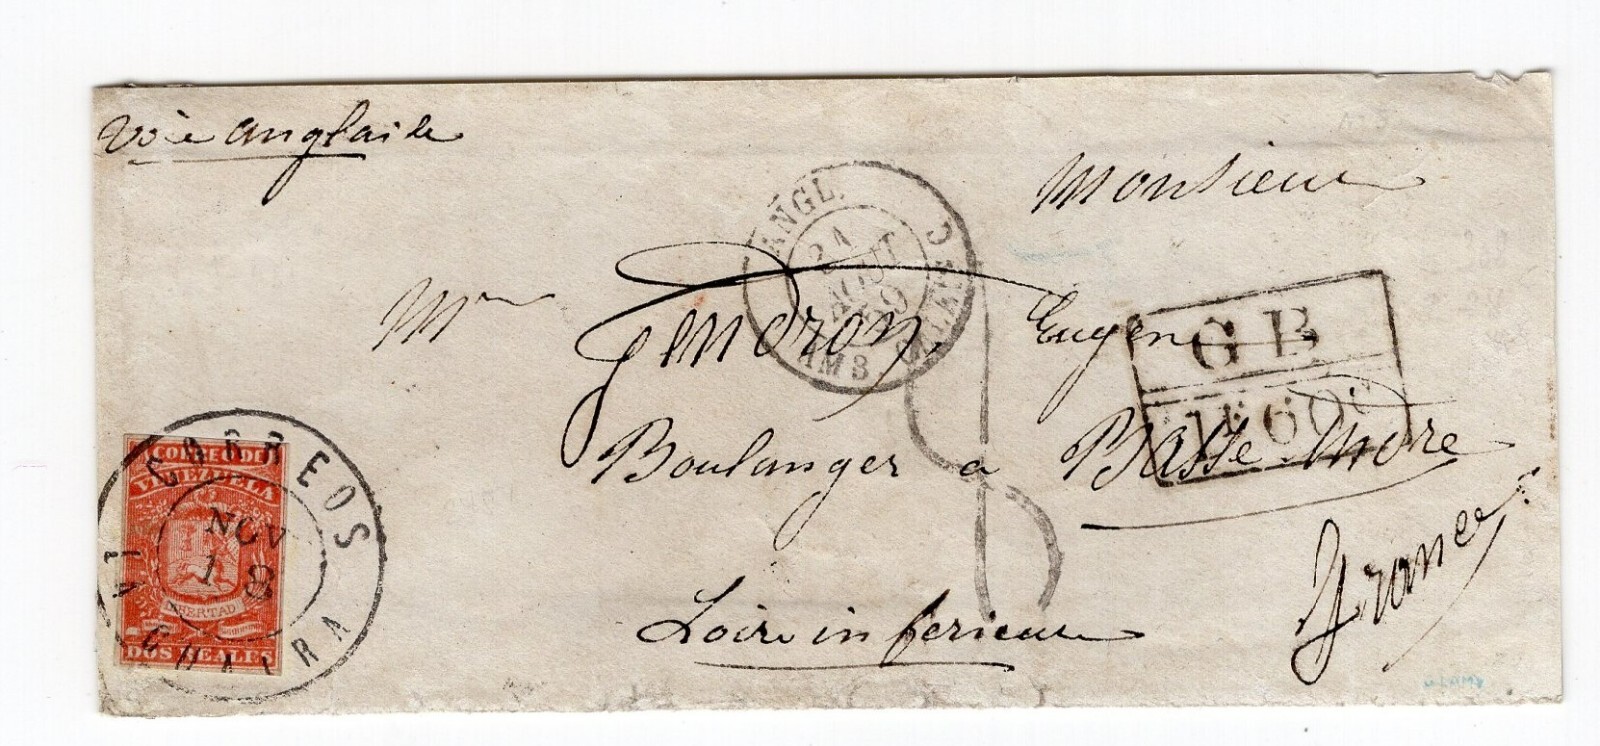 Voie anglaise
Monsieur
Mr Gendron, Eugene
Boulanger a Basse-Indre
Loire inferieure
France
ANGL. AMB. CALAIS D
AOUT
59
GB
1F 60C
CORREOS
LA GUAIRA
NOV
18
CORREO DE
VENEZUELA
LIBERTAD
DOS REALES